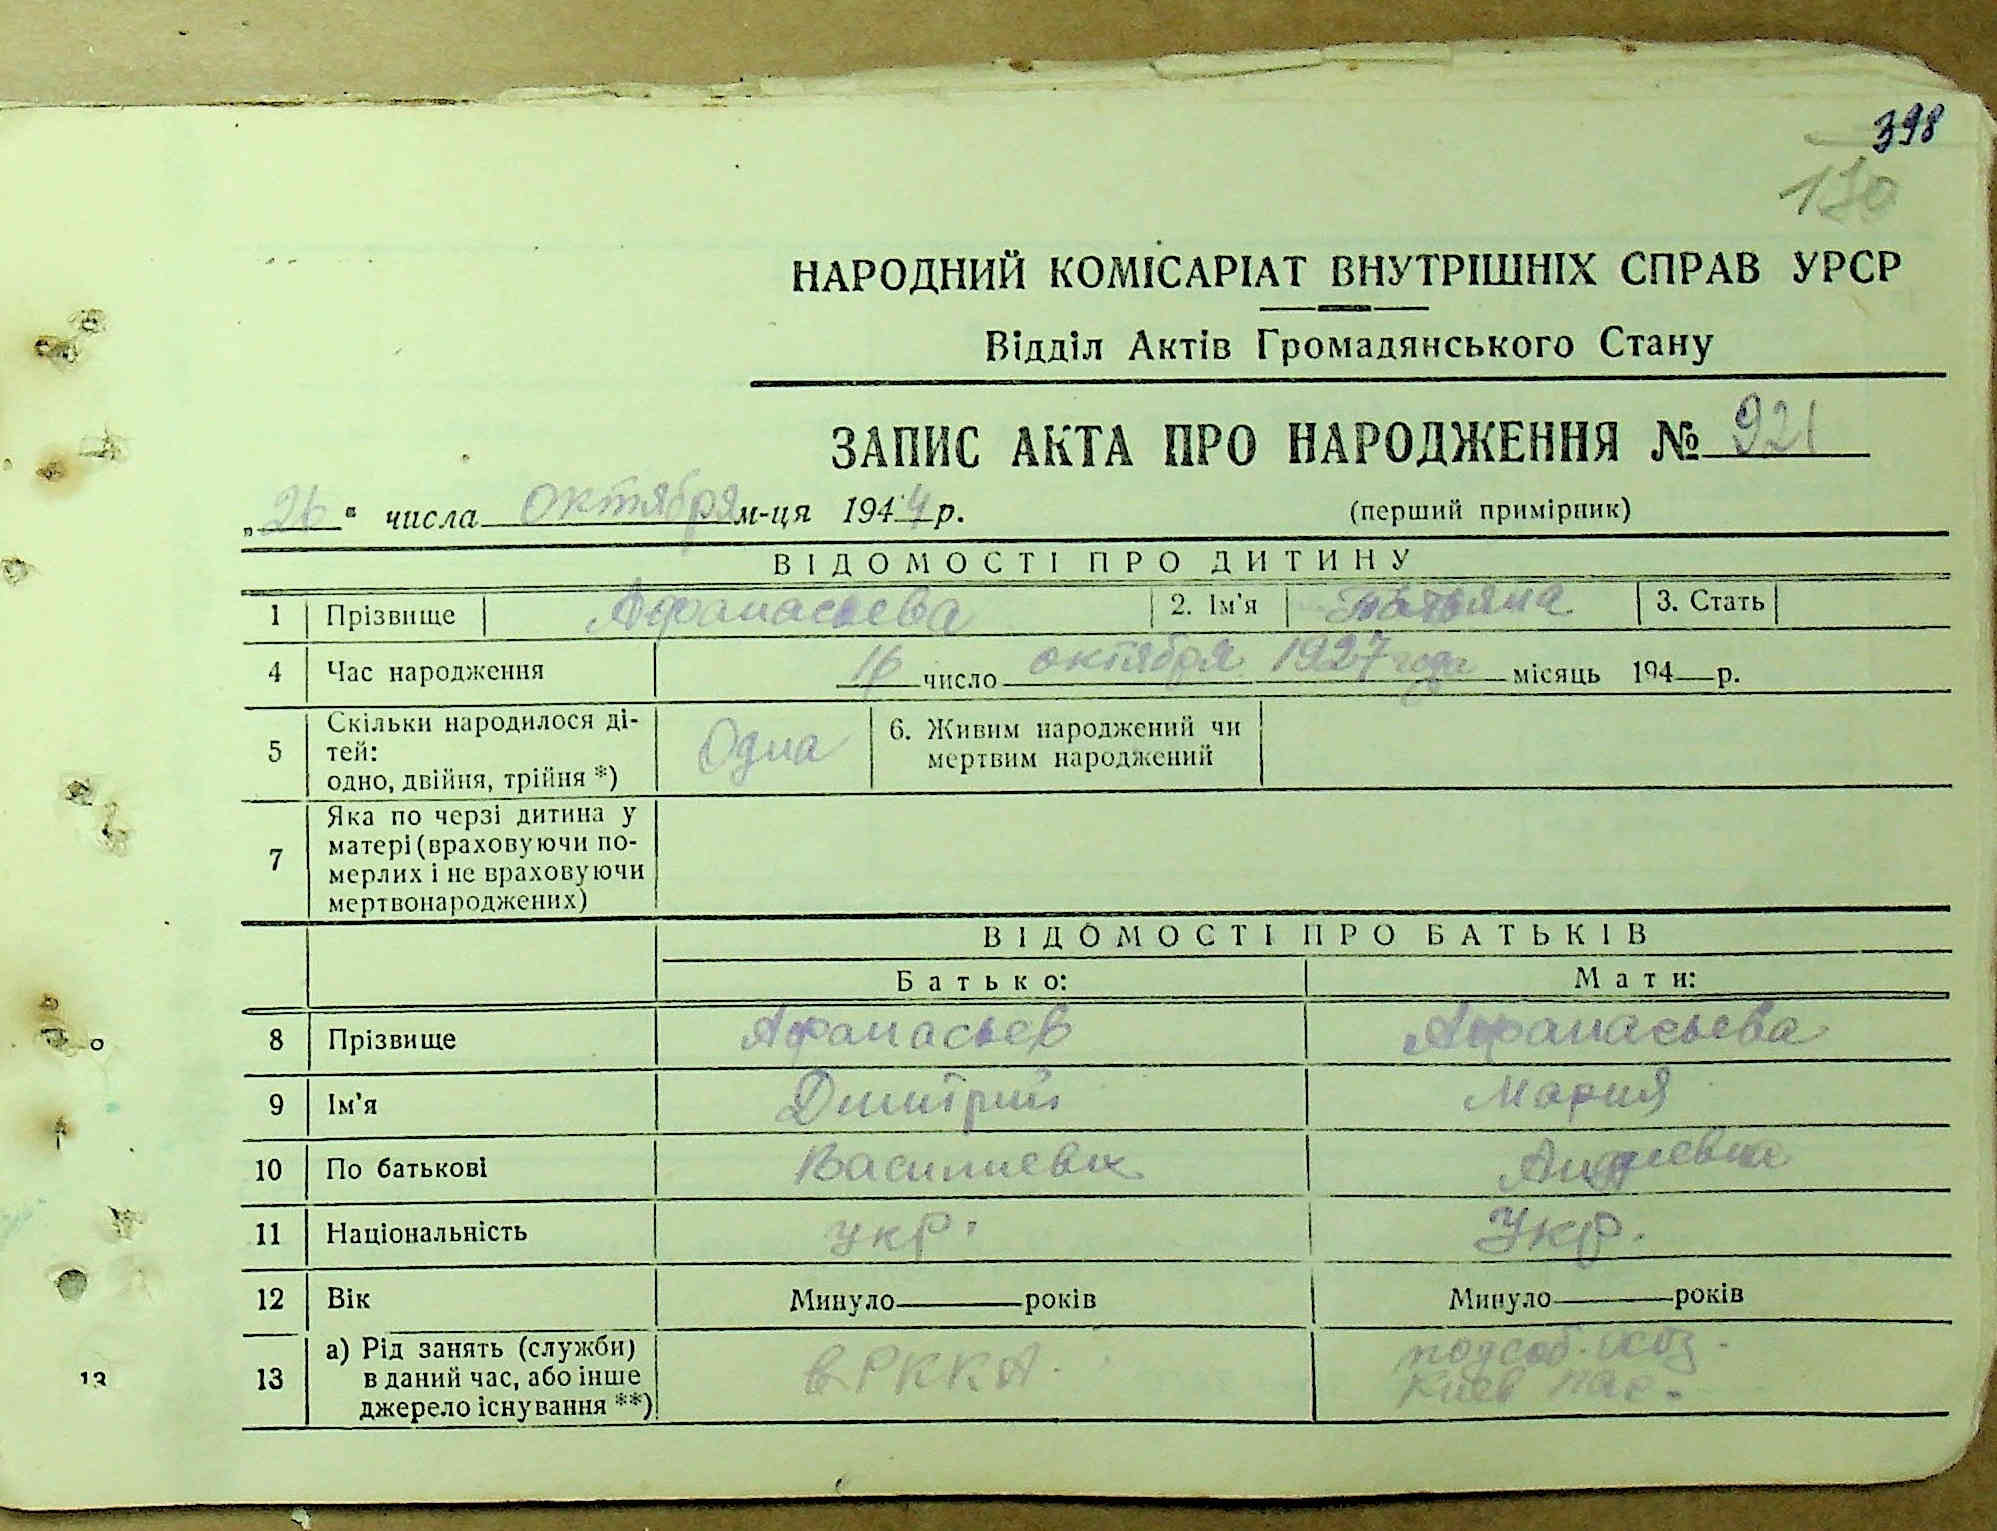 398
170
НАРОДНИЙ КОМІСАРІАТ ВНУТРІШНІХ СПРАВ УРСР
Відділ Актів Громадянського Стану
ЗАПИС АКТА ПРО НАРОДЖЕННЯ № 921
„26“ числа октября м-ця 1944 р. (перший примірник)
ВІДОМОСТІ ПРО ДИТИНУ
1 Прізвище Афанасьева 2. Ім'я Татьяна 3. Стать
4 Час народження 16 число октября 1927 года місяць 194 р.
5 Скільки народилося ді-
тей:
одно, двійня, трійня *) Одна 6. Живим народжений чи
мертвим народжений
7 Яка по черзі дитина у
матері (враховуючи по-
мерлих і не враховуючи
мертвонароджених)
ВІДОМОСТІ ПРО БАТЬКІВ
Батько: Мати:
8 Прізвище Афанасьев Афанасьева
9 Ім'я Дмитрий Мария
10 По батькові Васильевич Андреевна
11 Національність укр. Укр.
12 Вік Минуло років Минуло років
13 а) Рід занять (служби)
в даний час, або інше
джерело існування **) в РККА. подсоб. хоз.
Киев
13